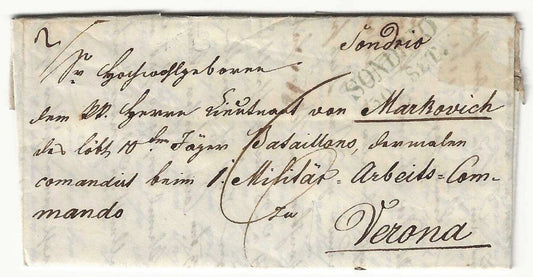 Sondrio
SONDRIO
SET.
Sr Hochwohlgeboren
dem KK. Herrn Lieutnant von Markovich
des löbl. 10ten Jäger Bataillons, dermalen
comandirt beim 1. Militär-Arbeits=Com-
mando zu
Verona